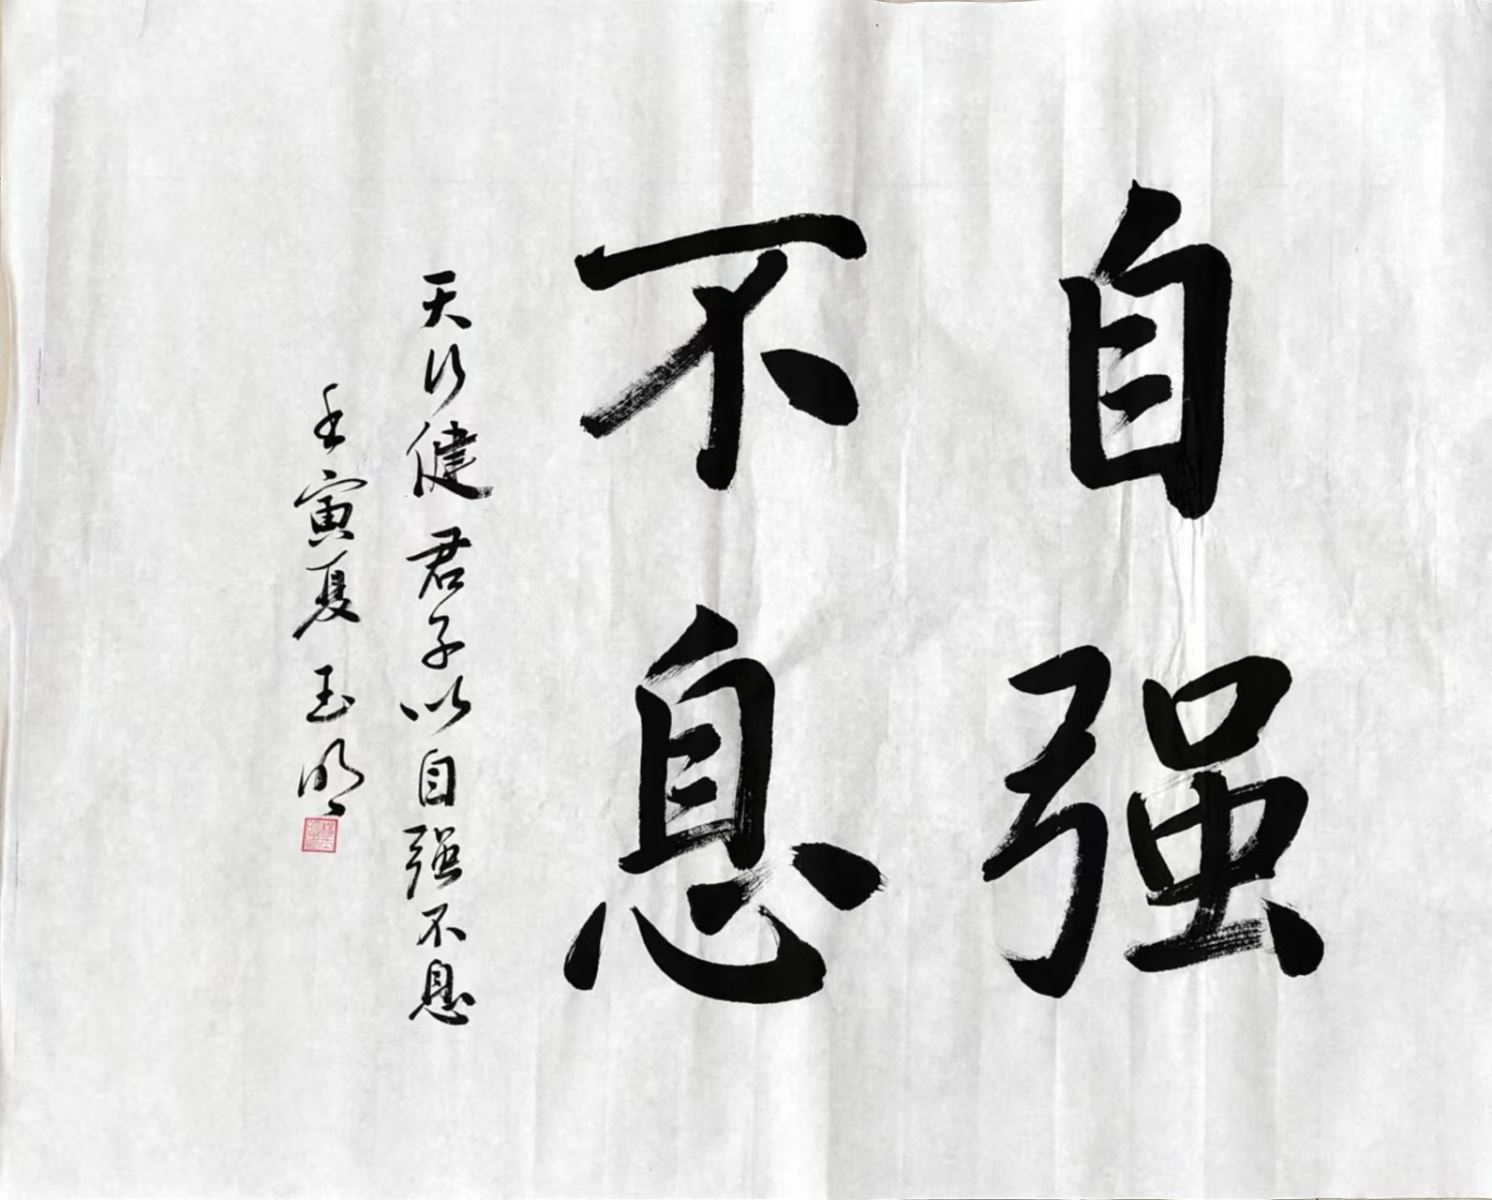 自强
不息
天行健君子以自强不息
壬寅夏玉明